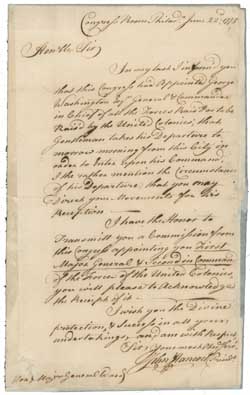 Congress Room Philad.a June 22.d 1775
Hon'ble Sir,
In my last I inform'd you
that this Congress had Appointed George
Washington Esq.r General & Commander
in Chief of all the Forces Rais'd or to be
Raised by the United Colonies, that
Gentleman takes his Departure to
morrow morning from this City in
order to Enter upon his Command,
I the rather mention the Circumstance
of his Departure, that you may
Direct your Movements for his
Reception
I have the Honor to
Transmitt you a Commission from
this Congress appointing you First
Major General & Second in Command
of the Forces of the United Colonies,
you will please to Acknowledge
the Receipt of it.
I wish you the Divine
protection, & Success in all your
undertakings, and am with Respect
Sir, Your most Obed.
John Hancock Presid.t
Hon.l Major General Ward